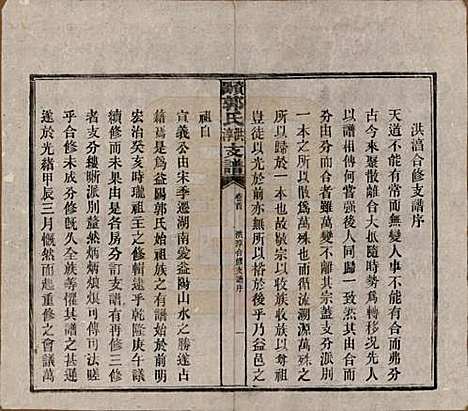 洪涪合修支譜序
天道不能有常而無變人事不能有合而弗分
古今來聚散離合大抵隨時勢為轉移況先人
以譜相傳何嘗強後人同歸一致第不有合何有
分由分而合者雖萬分可以共其宗蓋支分派別
一本之所以散為萬殊也而循流溯源萬殊之
所以歸於一本也故敬宗以收族收族以尊祖
豈徒以光於前亦無所以裕於後乎乃益邑
續郭氏譜支譜
卷首
支譜序
一
祖自
宣義公由宋季遷湖南愛益陽山水之勝遂占
籍焉為益陽郭氏始祖族之有譜始於前明
宏治癸亥時瓏祖主之修輯逮乎乾隆庚午議
續修而未果由是各房分訂支譜有再修三修
支分縷晰派別炳炳烺烺可傳可法嗟
乎合修未修既久全族等懼其譜之甚遞
遂於光緒甲辰三月慨然而起重修之會議萬